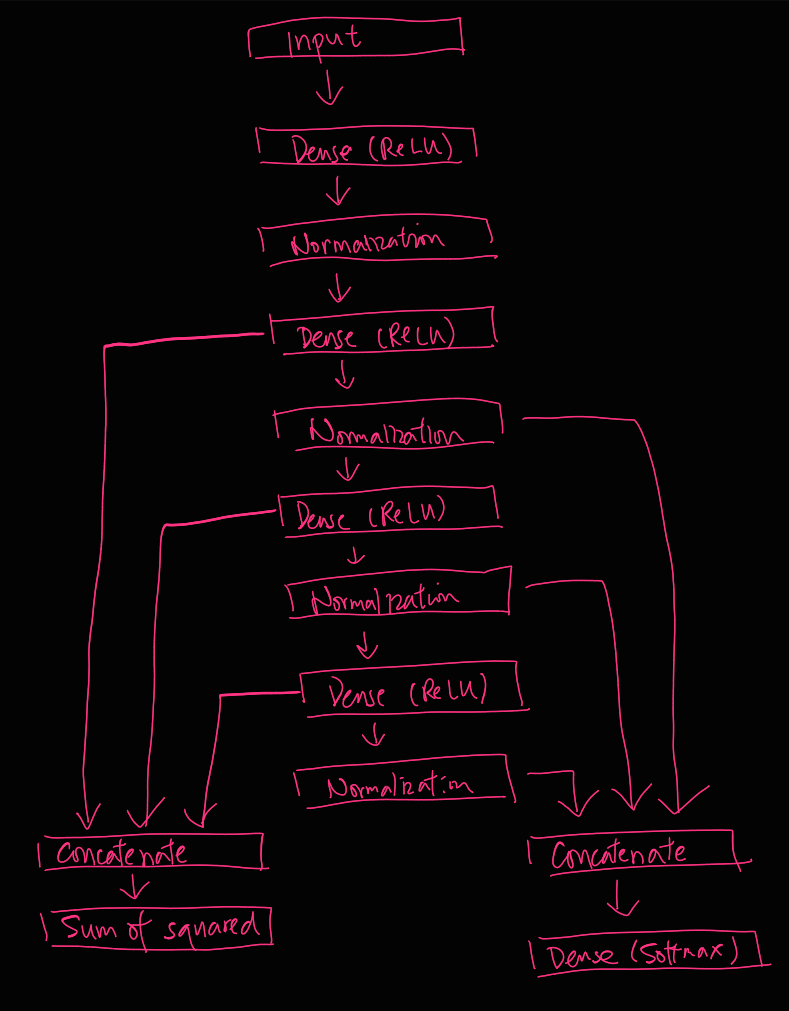 Input
Dense (ReLU)
Normalization
Dense (ReLU)
Normalization
Dense (ReLU)
Normalization
Dense (ReLU)
Normalization
Concatenate
Sum of squared
Concatenate
Dense (Softmax)